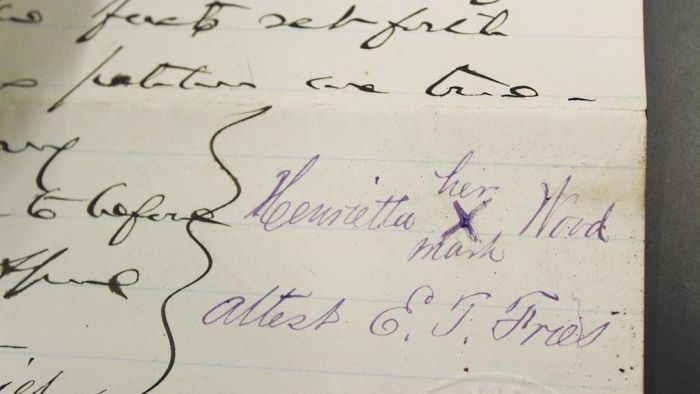 facts set forth
petition are true -
her
to before Henrietta X Wood
mark
attest E. T. Fries